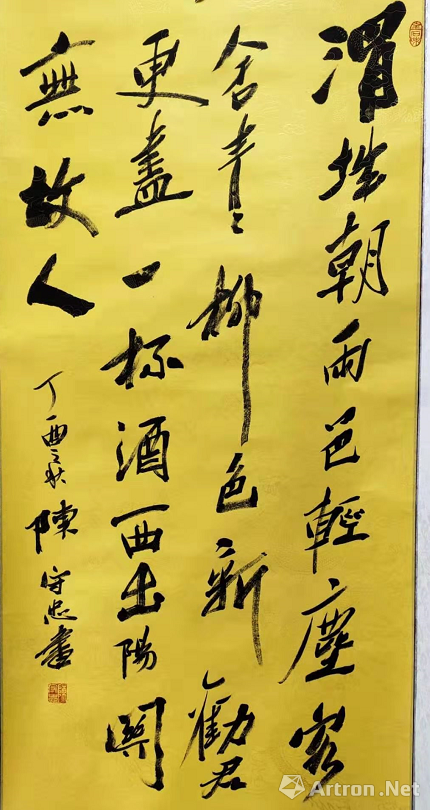 渭城朝雨邑輕塵客
舍青〻柳色新勸君
更盡一杯酒西出陽關
無故人
丁酉之秋陳守忠書
Artron.Net